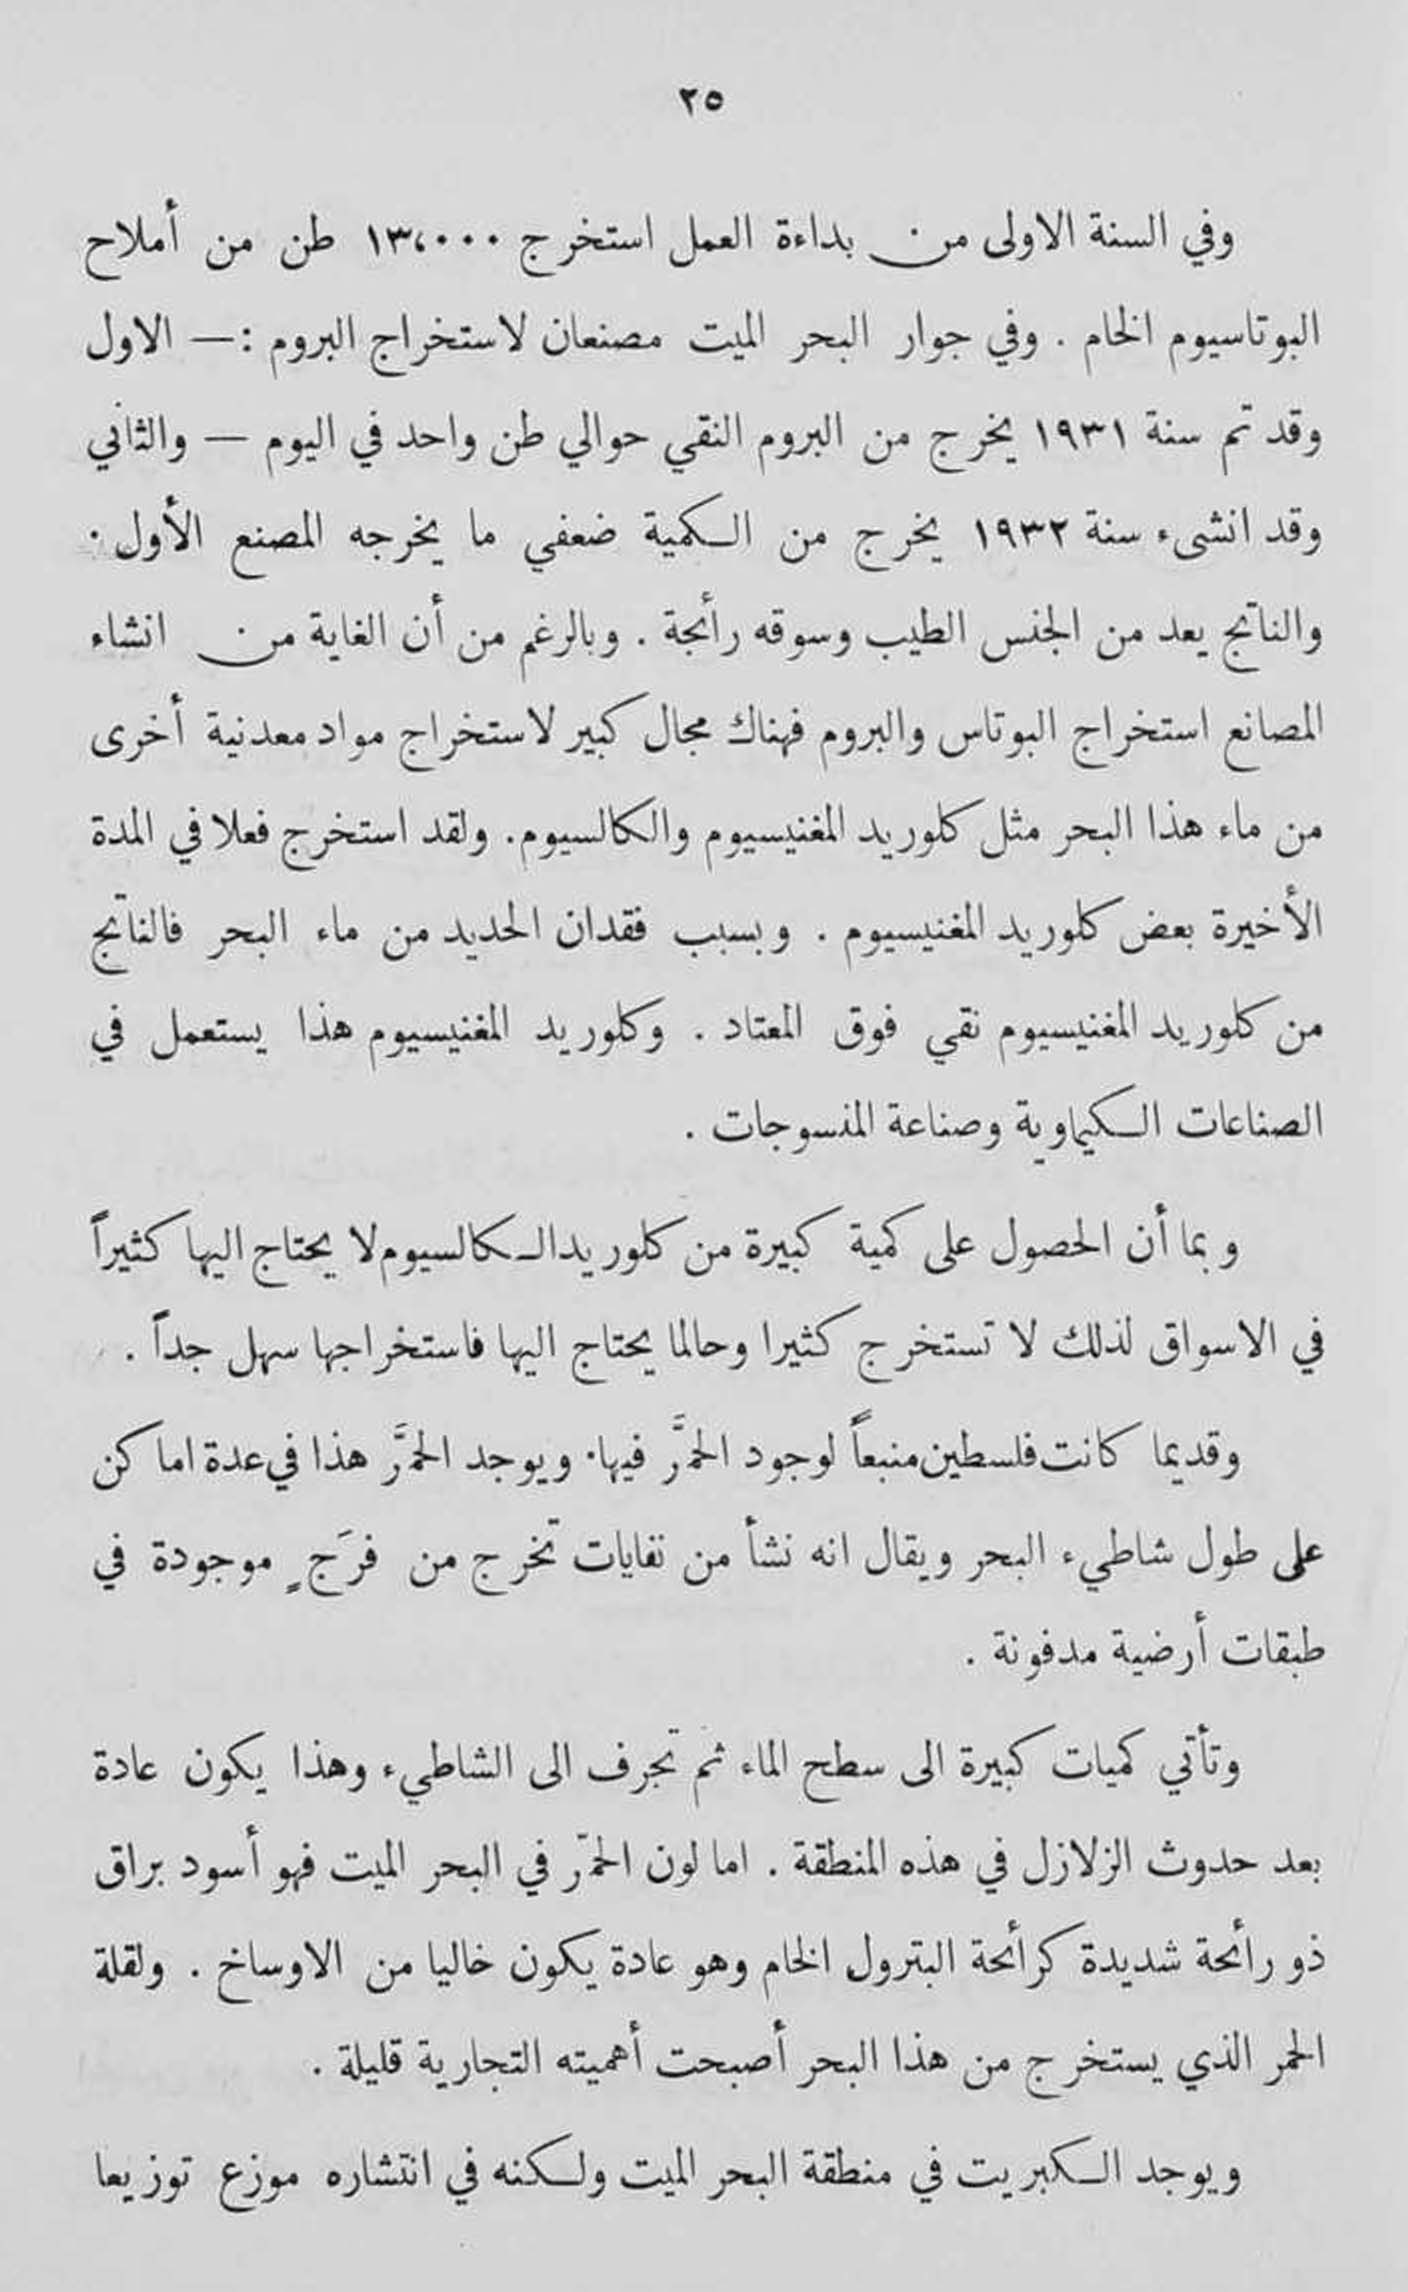 ٢٥
وفي السنة الاولى من بداءة العمل استخرج ١٣،٠٠٠ طن من أملاح
البوتاسيوم الخام . وفي جوار البحر الميت مصنعان لاستخراج البروم :— الاول
وقد تم سنة ١٩٣١ يخرج من البروم النقي حوالي طن واحد في اليوم — والثاني
وقد انشىء سنة ١٩٣٢ يخرج من الكمية ضعفي ما يخرجه المصنع الأول .
والناتج يعد من الجنس الطيب وسوقه رأئجة . وبالرغم من أن الغاية من انشاء
المصانع استخراج البوتاس والبروم فهناك مجال كبير لاستخراج مواد معدنية أخرى
من ماء هذا البحر مثل كلوريد المغنيسيوم والكالسيوم . ولقد استخرج فعلا في المدة
الأخيرة بعض كلوريد المغنيسيوم . وبسبب فقدان الحديد من ماء البحر فالناتج
من كلوريد المغنيسيوم نقي فوق المعتاد . وكلوريد المغنيسيوم هذا يستعمل في
الصناعات الكيماوية وصناعة المنسوجات .
وبما أن الحصول على كمية كبيرة من كلوريد الكالسيوم لا يحتاج اليها كثيراً
في الاسواق لذلك لا تستخرج كثيرا وحالما يحتاج اليها فاستخراجها سهل جداً .
وقديما كانت فلسطين منبعاً لوجود الحمَّر فيها . ويوجد الحمَّر هذا في عدة اماكن
على طول شاطيء البحر ويقال انه نشأ من نفايات تخرج من فرَجٍ موجودة في
طبقات أرضية مدفونة .
وتأتي كميات كبيرة الى سطح الماء ثم تجرف الى الشاطيء وهذا يكون عادة
بعد حدوث الزلازل في هذه المنطقة . اما لون الحمّر في البحر الميت فهو أسود براق
ذو رأئحة شديدة كرأئحة البترول الخام وهو عادة يكون خاليا من الاوساخ . ولقلة
الحمر الذي يستخرج من هذا البحر أصبحت أهميته التجارية قليلة .
ويوجد الكبريت في منطقة البحر الميت ولكنه في انتشاره موزع توزيعا